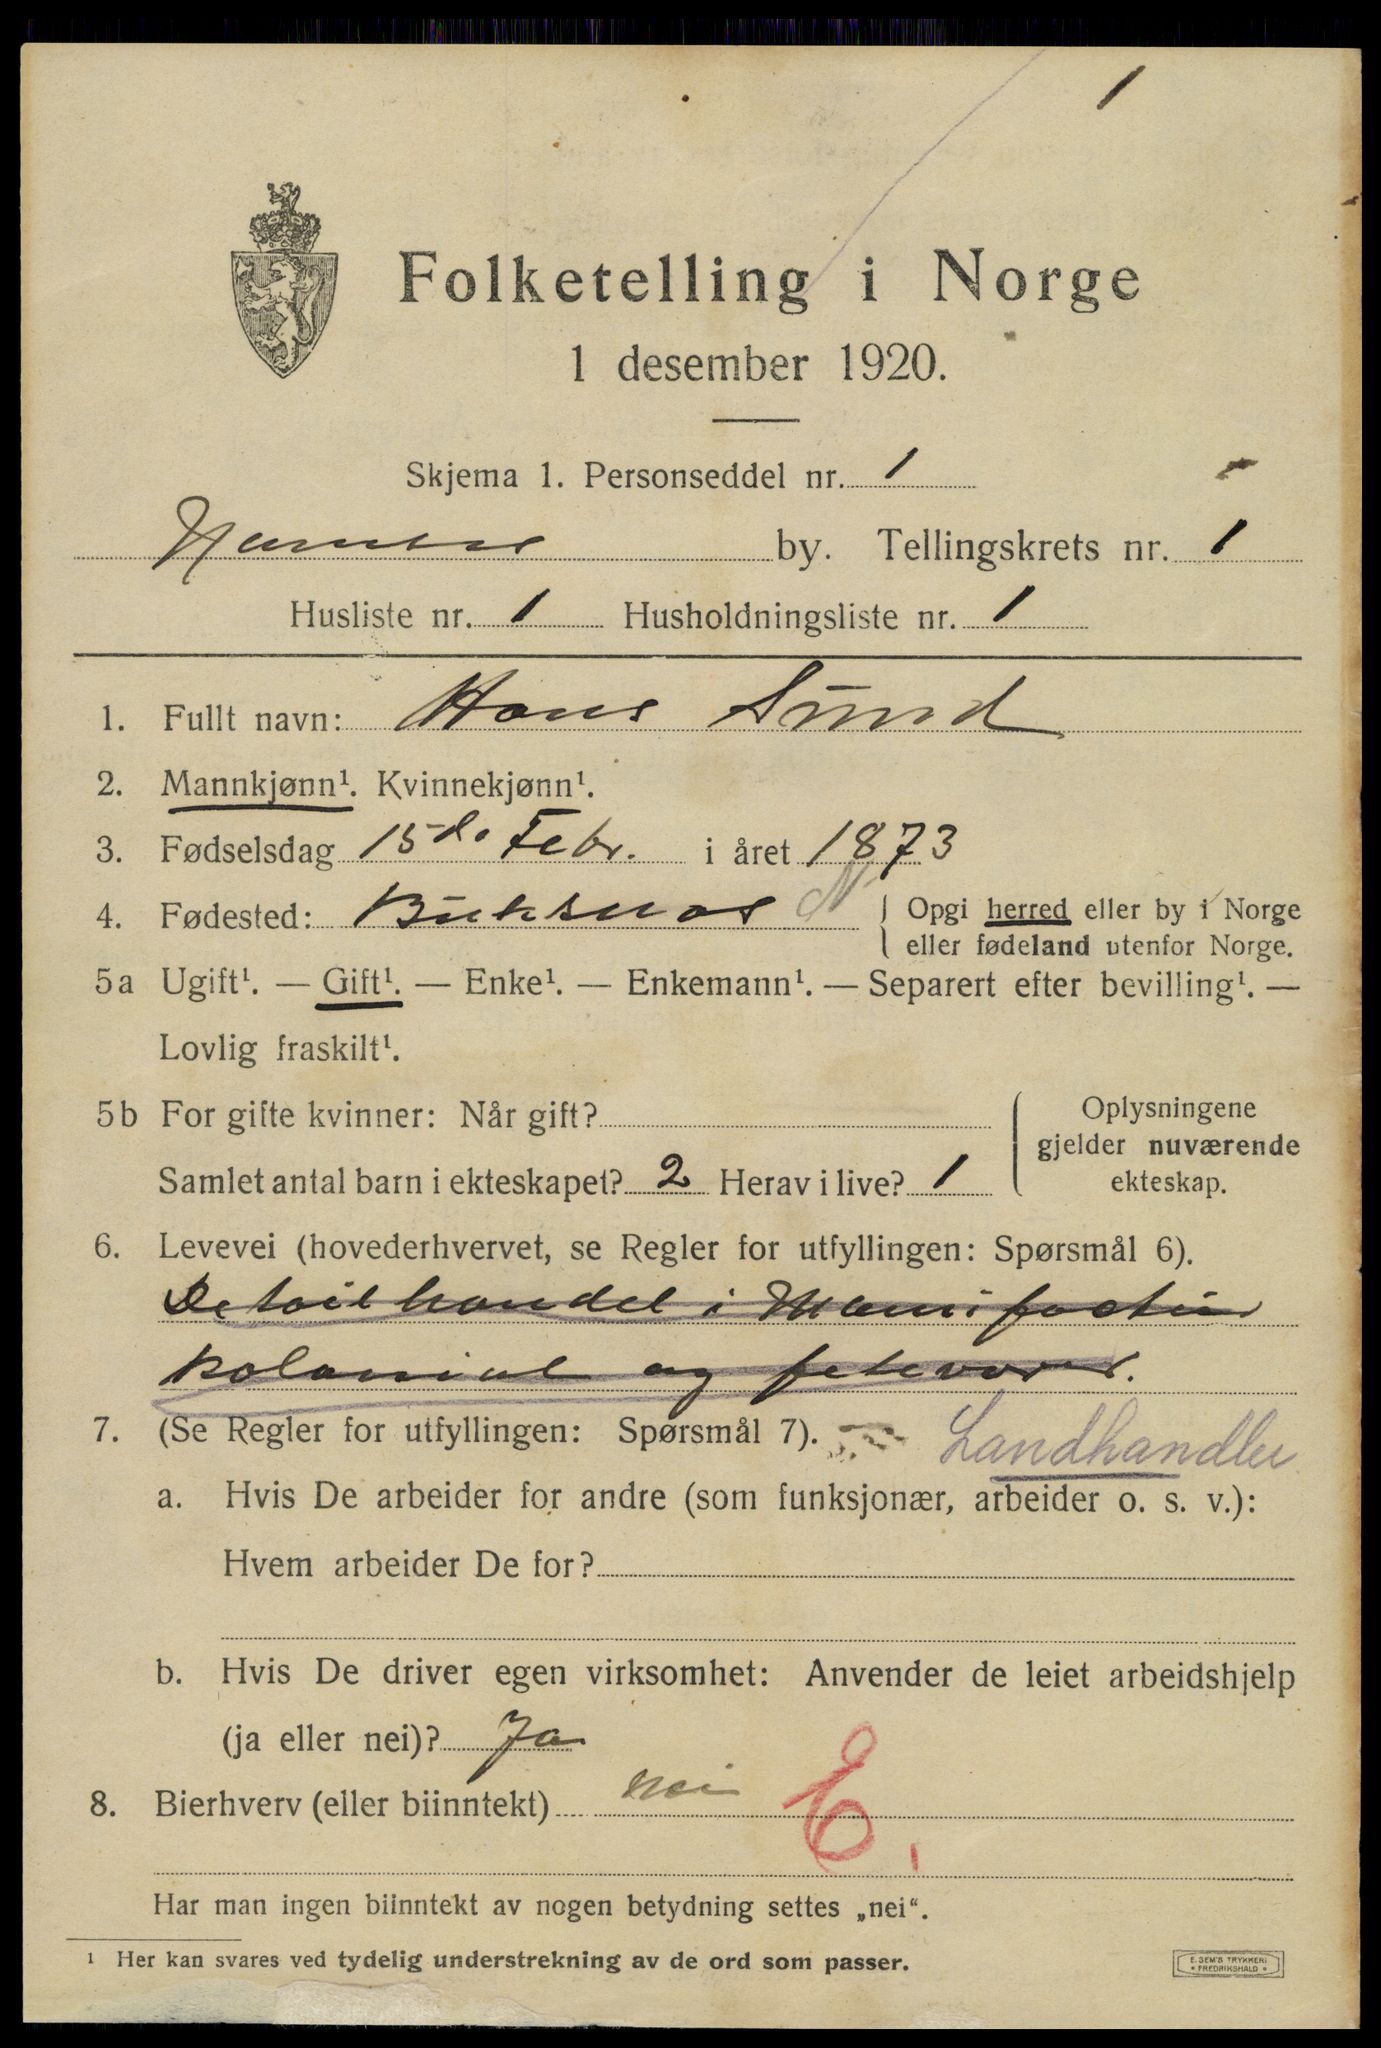 1
Folketelling i Norge
1 desember 1920.
Skjema 1. Personseddel nr. 1
by. Tellingskrets nr. 1
Husliste nr. 1 Husholdningsliste nr. 1
1. Fullt navn: Hans Sund
2. Mannkjønn¹. Kvinnekjønn¹.
3. Fødselsdag 15de Febr. i året 1873
4. Fødested: Buksnes N { Opgi herred eller by i Norge
eller fødeland utenfor Norge.
5a Ugift¹. — Gift¹. — Enke¹. — Enkemann¹. — Separert efter bevilling¹. —
Lovlig fraskilt¹.
5b For gifte kvinner: Når gift?
Samlet antal barn i ekteskapet? 2 Herav i live? 1
Oplysningene
gjelder nuværende
ekteskap.
6. Levevei (hovederhvervet, se Regler for utfyllingen: Spørsmål 6).
Detailhandel i Manifactur
kolonial og fetevarer.
7. (Se Regler for utfyllingen: Spørsmål 7). Landhandler
a. Hvis De arbeider for andre (som funksjonær, arbeider o. s. v.):
Hvem arbeider De for?
b. Hvis De driver egen virksomhet: Anvender de leiet arbeidshjelp
(ja eller nei)? Ja
8. Bierhverv (eller biinntekt) nei E.
Har man ingen biinntekt av nogen betydning settes „nei“.
¹ Her kan svares ved tydelig understrekning av de ord som passer.
E. SEM'S TRYKKERI
• FREDRIKSHALD •